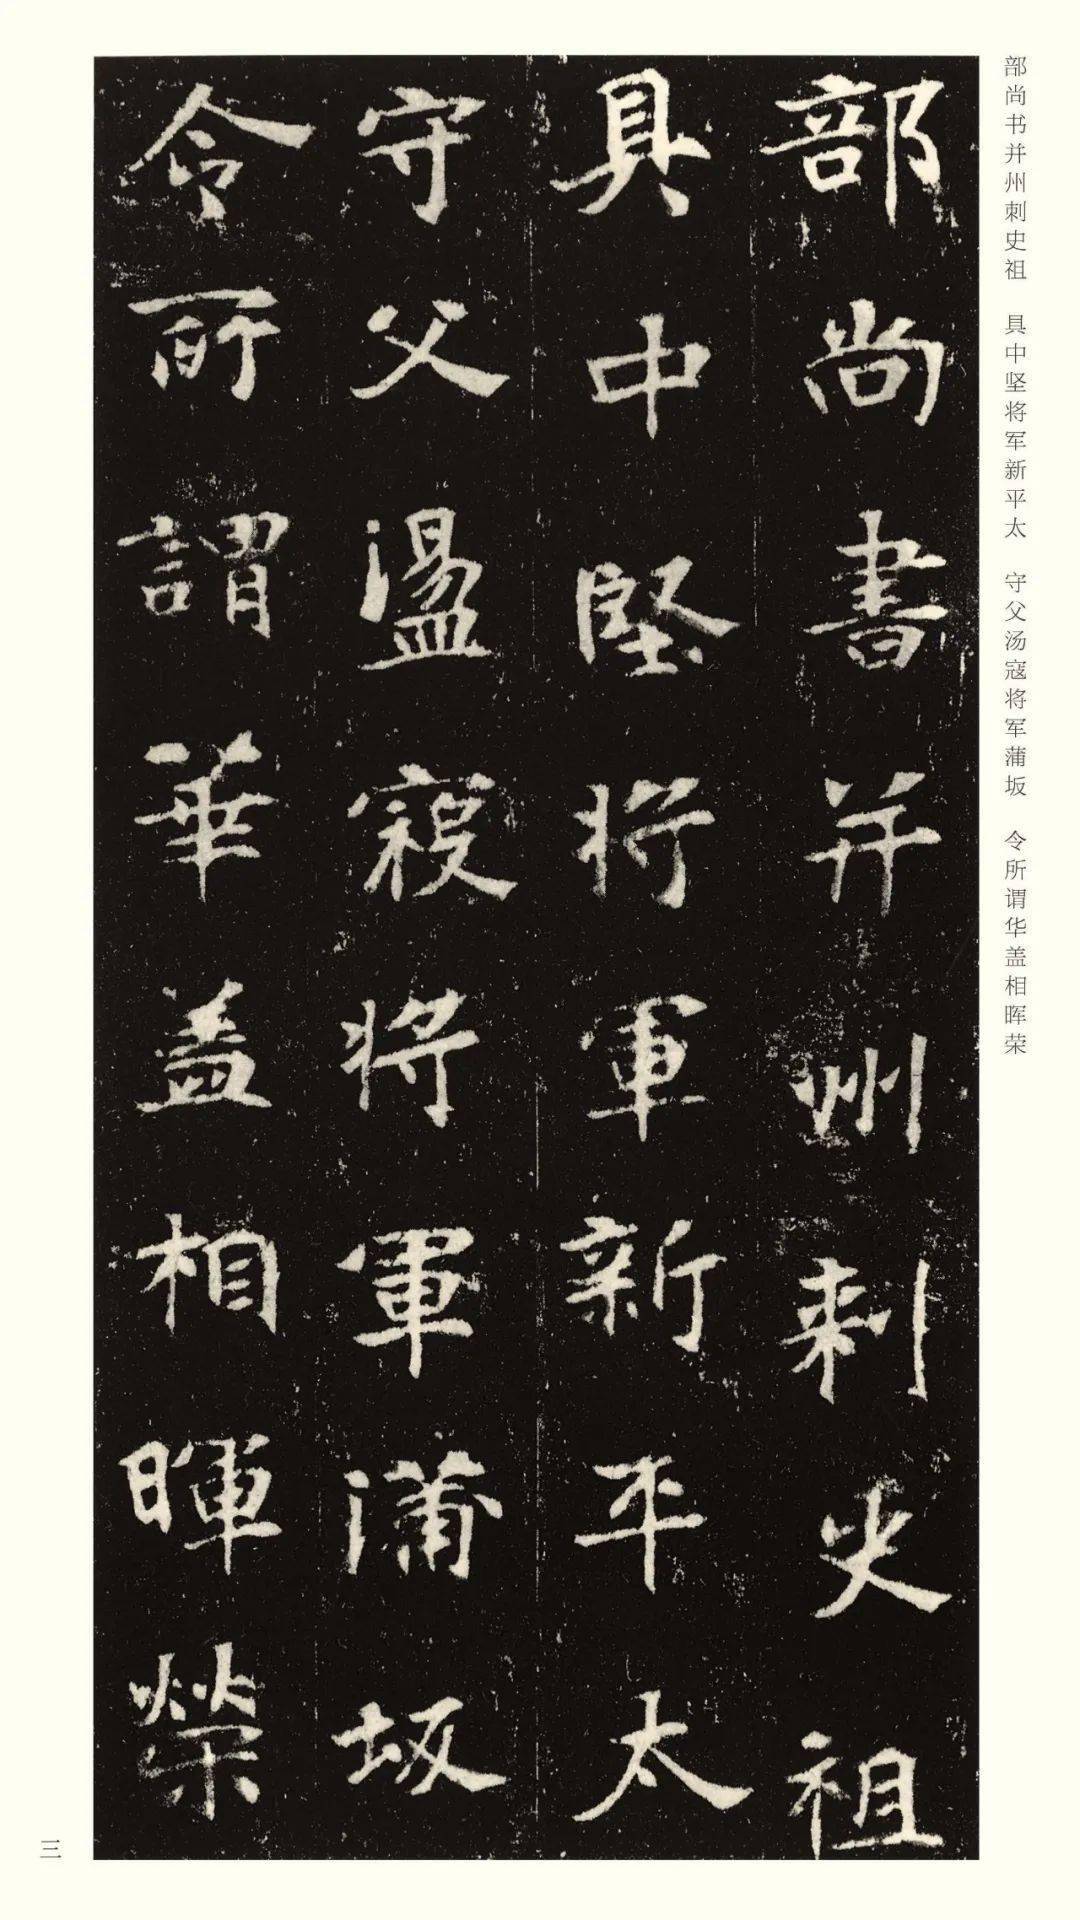 部尚书并州刺史祖　具中坚将军新平太　守父汤寇将军蒲坂　令所谓华盖相晖荣
部尚書并州刺史祖
具中堅將軍新平太
守父盪寇將軍蒲坂
令所謂華蓋相暉榮
三